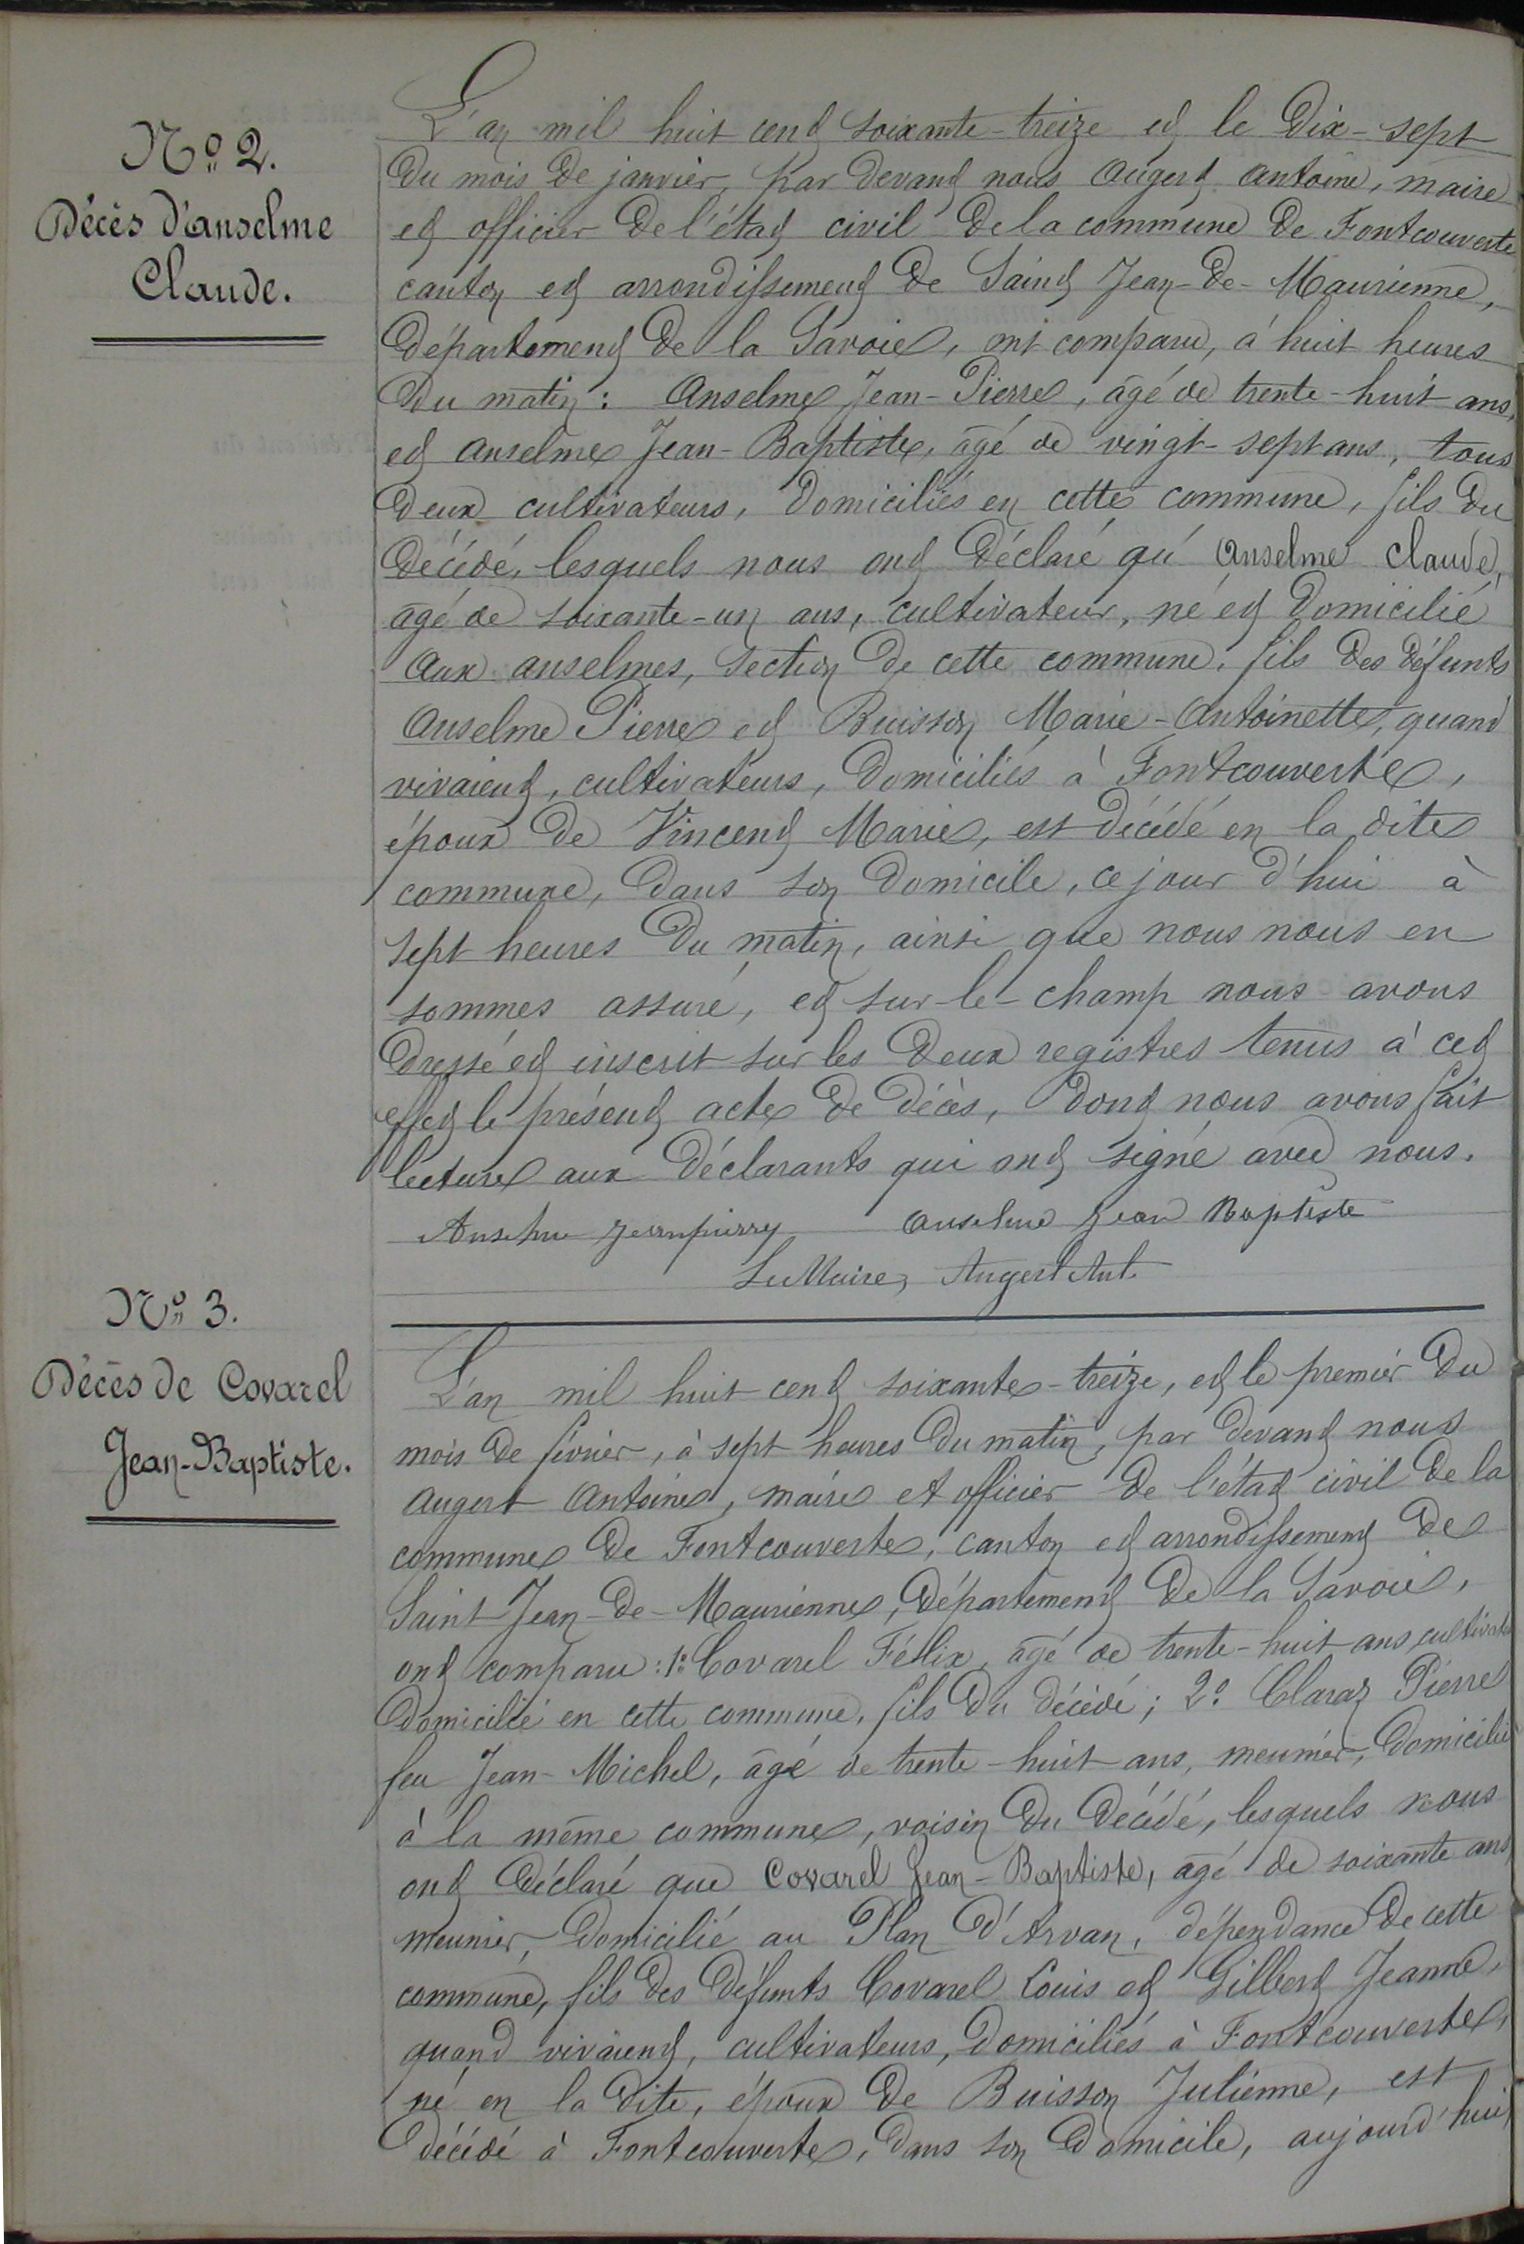 N° 2.
Décès d'anselme
Claude.
L'an mil huit cent soixante-treize et le dix-sept
du mois de janvier, par devant nous augert antoine, maire
et officier de l'état civil de la commune de Fontcouverte
canton et arrondissement de Saint Jean-de-Maurienne,
département de la Savoie, ont comparu, à huit heures
du matin: Anselme Jean-Pierre, âgé de trente-huit ans,
et anselme Jean-Baptiste, âgé de vingt-sept ans, tous
deux cultivateurs, domiciliés en cette commune, fils du
décédé, lesquels nous ont déclaré qu'anselme claude,
agé de soixante-un ans, cultivateur, né et domicilié
aux anselmes, section de cette commune, fils des défunts
anselme Pierre et Buisson Marie-antoinette, quand
vivaient, cultivateurs, domiciliés à Fontcouverte,
époux de Vincent Marie, est décédé en la dite
commune, dans son domicile, ce jour d'hui à
sept heures du matin, ainsi que nous nous en
sommes assuré, et sur-le-champ nous avons
dressé et inscrit sur les deux registres tenus à cet
effet le présent acte de décès, dont nous avons fait
lecture aux déclarants qui ont signé avec nous.
Anselme jeanpierry anselme jean Baptiste
Le Maire, Augert Ant.
N° 3.
Décès de Covarel
Jean-Baptiste.
L'an mil huit cent soixante-treize, et le premier du
mois de février, à sept heures du matin, par devant nous
augert antoine, maire et officier de l'état civil de la
commune de Fontcouverte, canton et arrondissement de
Saint Jean-de-Maurienne, département de la Savoie,
ont comparu: 1° Covarel Félix, âgé de trente-huit ans cultivate
domicilié en cette commune, fils du décédé; 2° Claraz Pierre
feu Jean-Michel, âgé de trente-huit ans, meunier, domicilié
à la même commune, voisin du décédé, lesquels nous
ont déclaré que Covarel Jean-Baptiste, agé de soixante ans,
meunier, domicilié au Plan d'Arvan, dépendance de cette
commune, fils des défunts Covarel Louis et Gilbert Jeanne,
quand vivaient, cultivateurs, domiciliés à Fontcouverte,
né en la dite, époux de Buisson Julienne, est
décédé à Fontcouverte, dans son domicile, aujourd'hui,